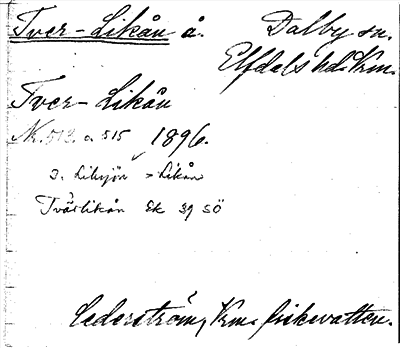 Tver-Likån å. Dalby sn.
Elfdals hd. Krm.
Tver-Likån
Nr. 513 o 515 1896.
s. Liksjön > Likån
Tvärlikån Ek 39 SÖ
Cederström, Krm. fiskevatten.